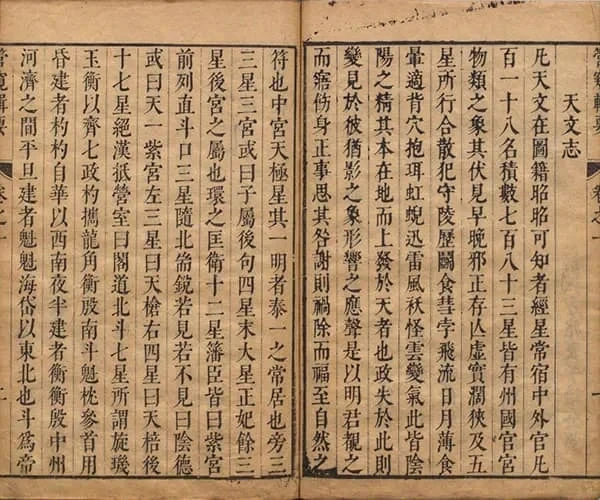 管窺輯要 卷之一 一
天文志
凡天文在圖籍昭昭可知者經星常宿中外官凡
百一十八名積數七百八十三星皆有州國官宮
物類之象其伏見早晚邪正存亾虛實濶狹及五
星所行合散犯守陵歷鬬食彗孛飛流日月薄食
暈適背穴抱珥虹蜺迅雷風祅怪雲變氣此皆陰
陽之精其本在地而上發於天者也政失於此則
變見於彼猶影之象形響之應聲是以明君覩之
而寤飭身正事思其咎謝則禍除而福至自然之
符也中宮天極星其一明者泰一之常居也旁三
三星三宮或曰子屬後句四星末大星正妃餘三
星後宮之屬也環之匡衛十二星藩臣皆曰紫宮
前列直斗口三星隨北耑銳若見若不見曰陰德
或曰天一紫宮左三星曰天槍右四星曰天棓後
十七星絕漢抵營室曰閣道北斗七星所謂旋璣
玉衡以齊七政杓攜龍角衡殷南斗魁枕參首用
昏建者杓杓自華以西南夜半建者衡衡殷中州
河濟之間平旦建者魁魁海岱以東北也斗爲帝
管窺輯要 卷之一 二